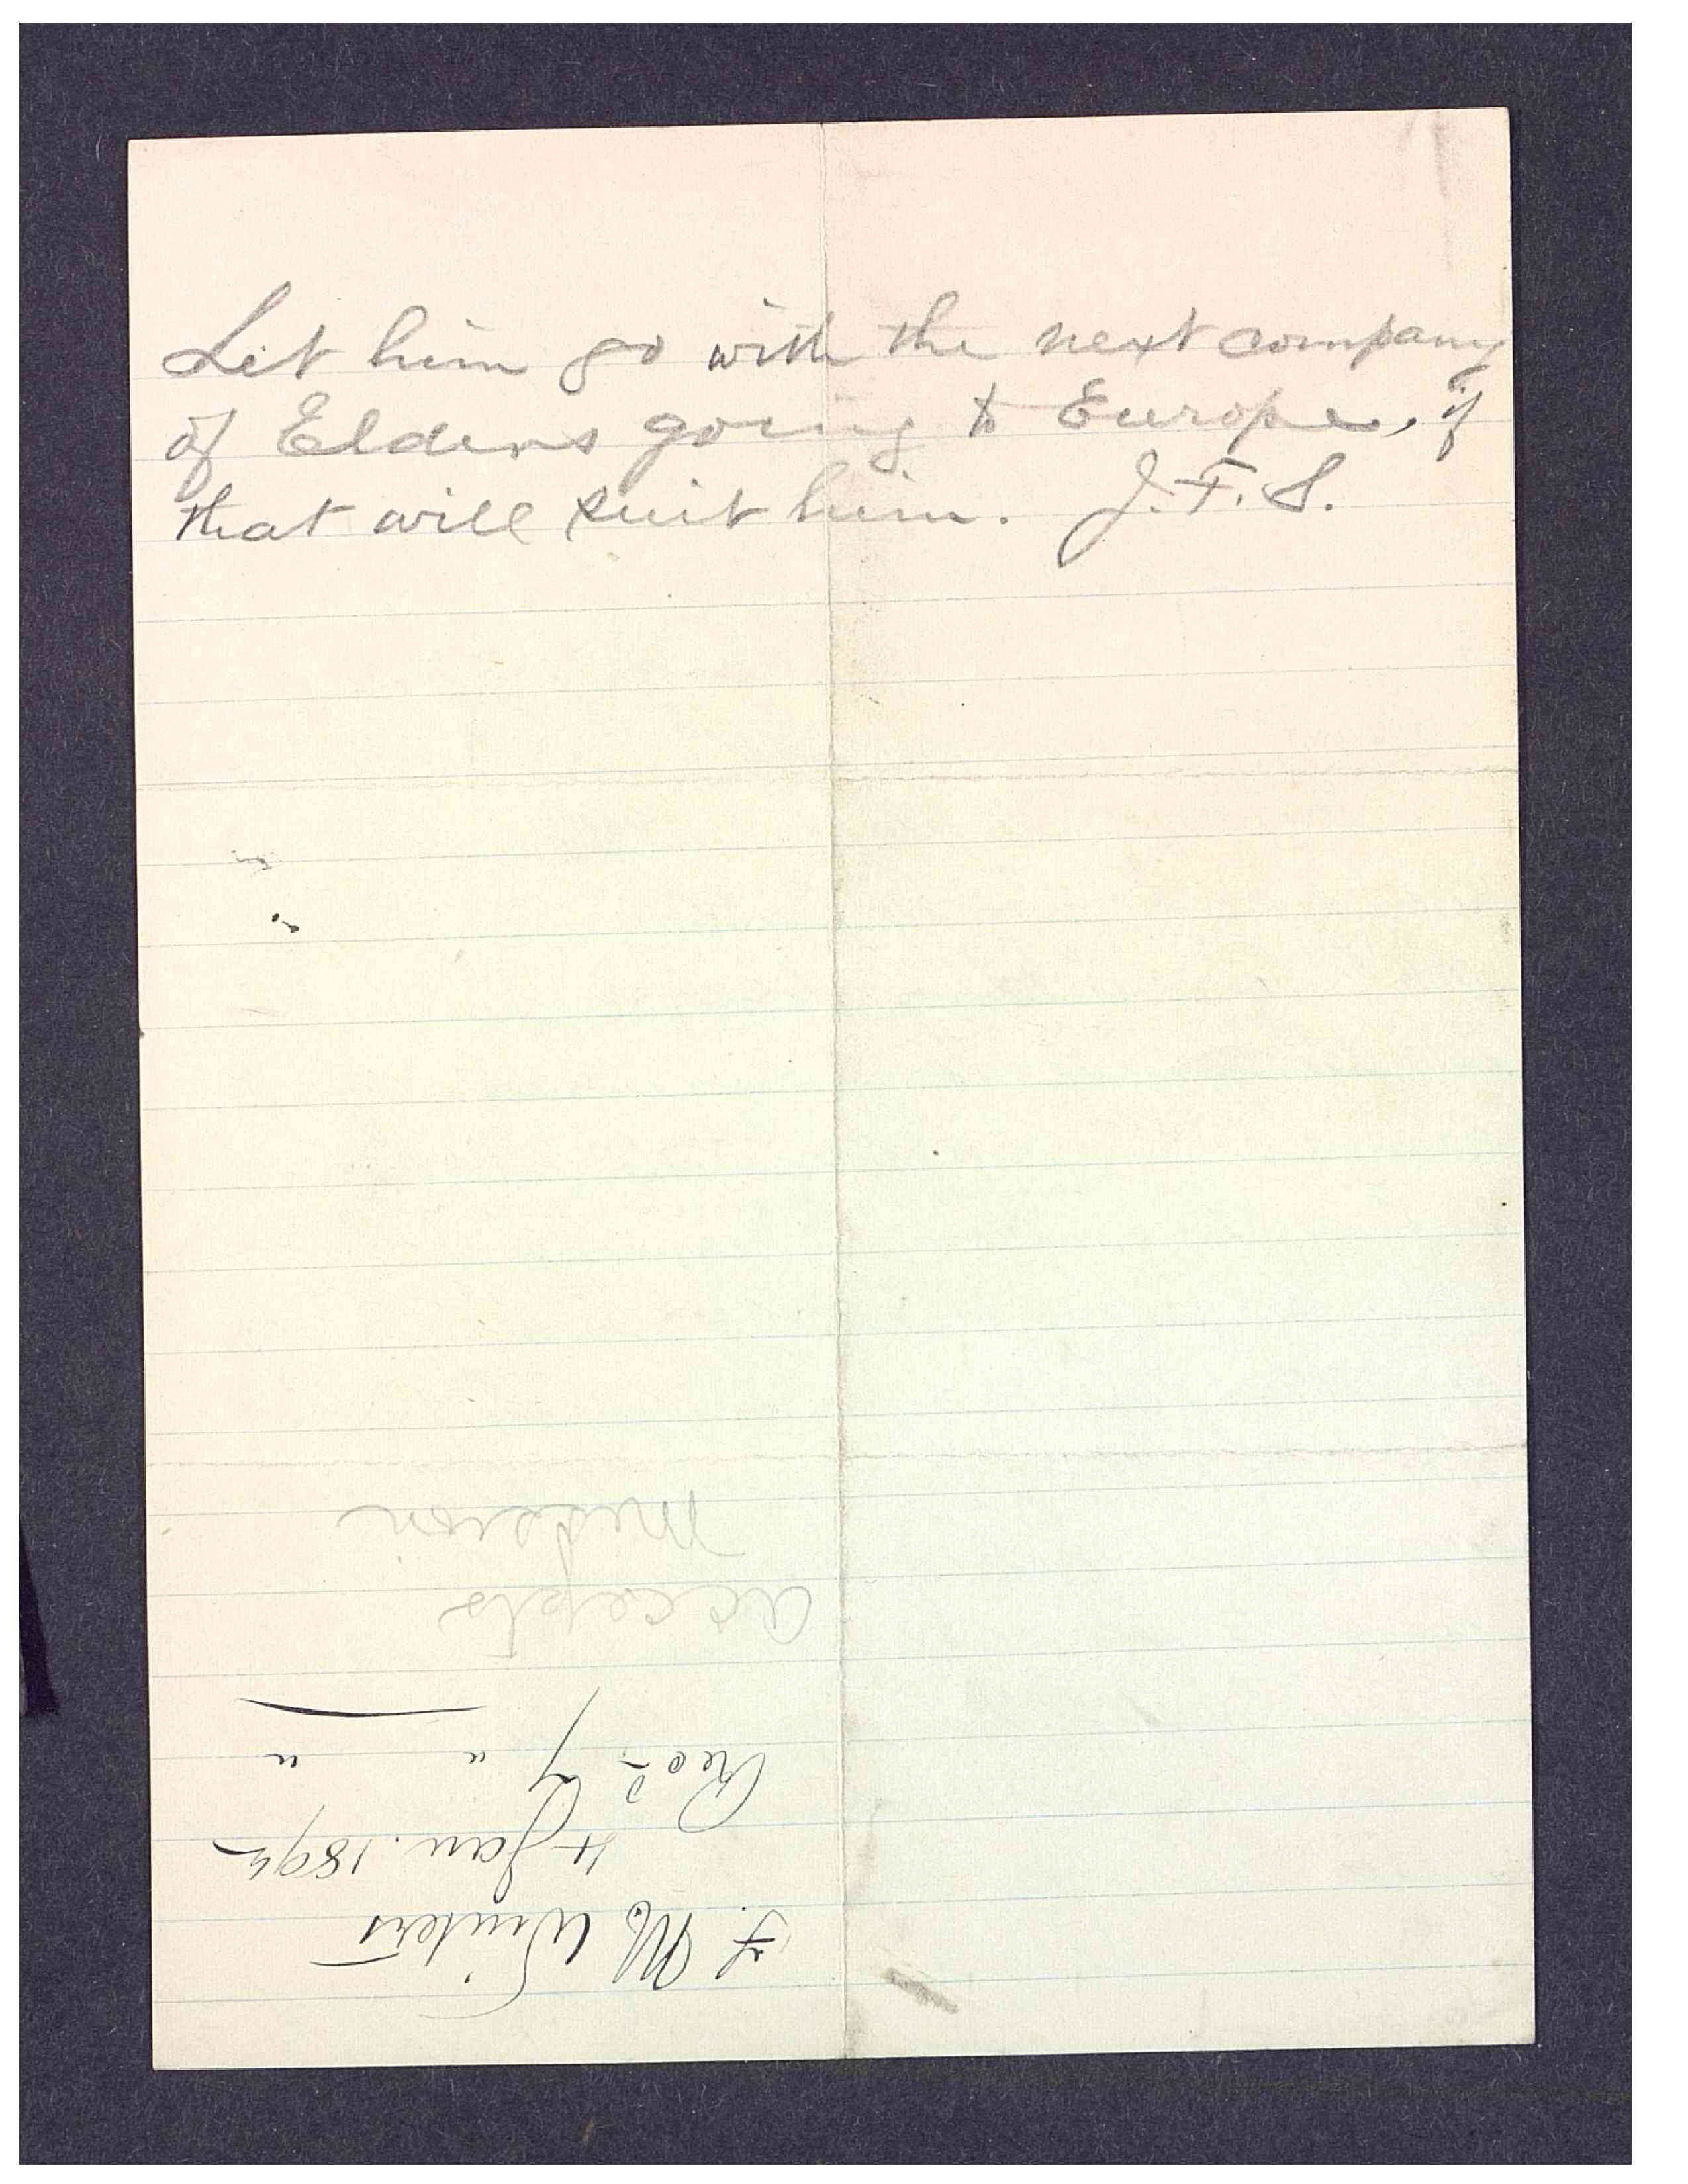 Let him go with the next company
of Elders going to Europe, if
that will suit him. J. F. S.
F. M. Winters
4 Jan. 1895
Recd 7 " "
accepts
mission